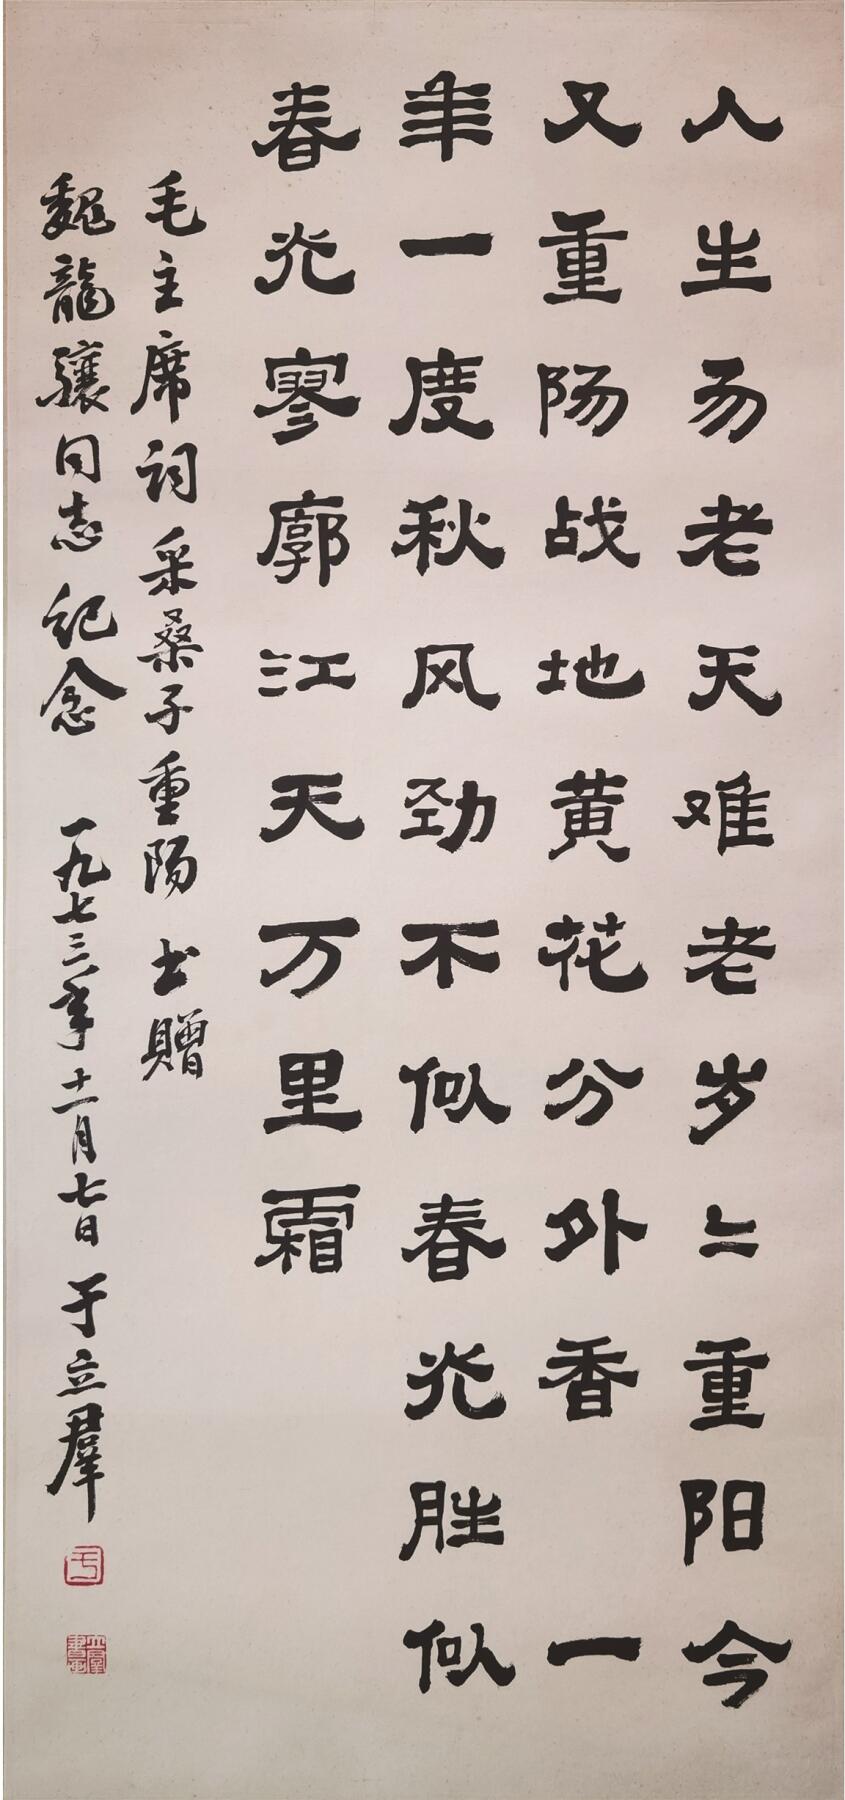 人生易老天难老岁〻重阳今
又重阳战地黄花分外香一
年一度秋风劲不似春光胜似
春光寥廓江天万里霜
毛主席词采桑子重阳 书贈
魏龍骧同志纪念 一九七三年十一月七日 于立羣